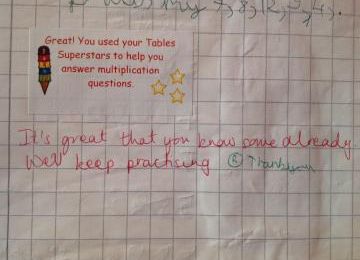 Great! You used your Tables
Superstars to help you
answer multiplication
questions.
It's great that you know some already
We'll keep practising